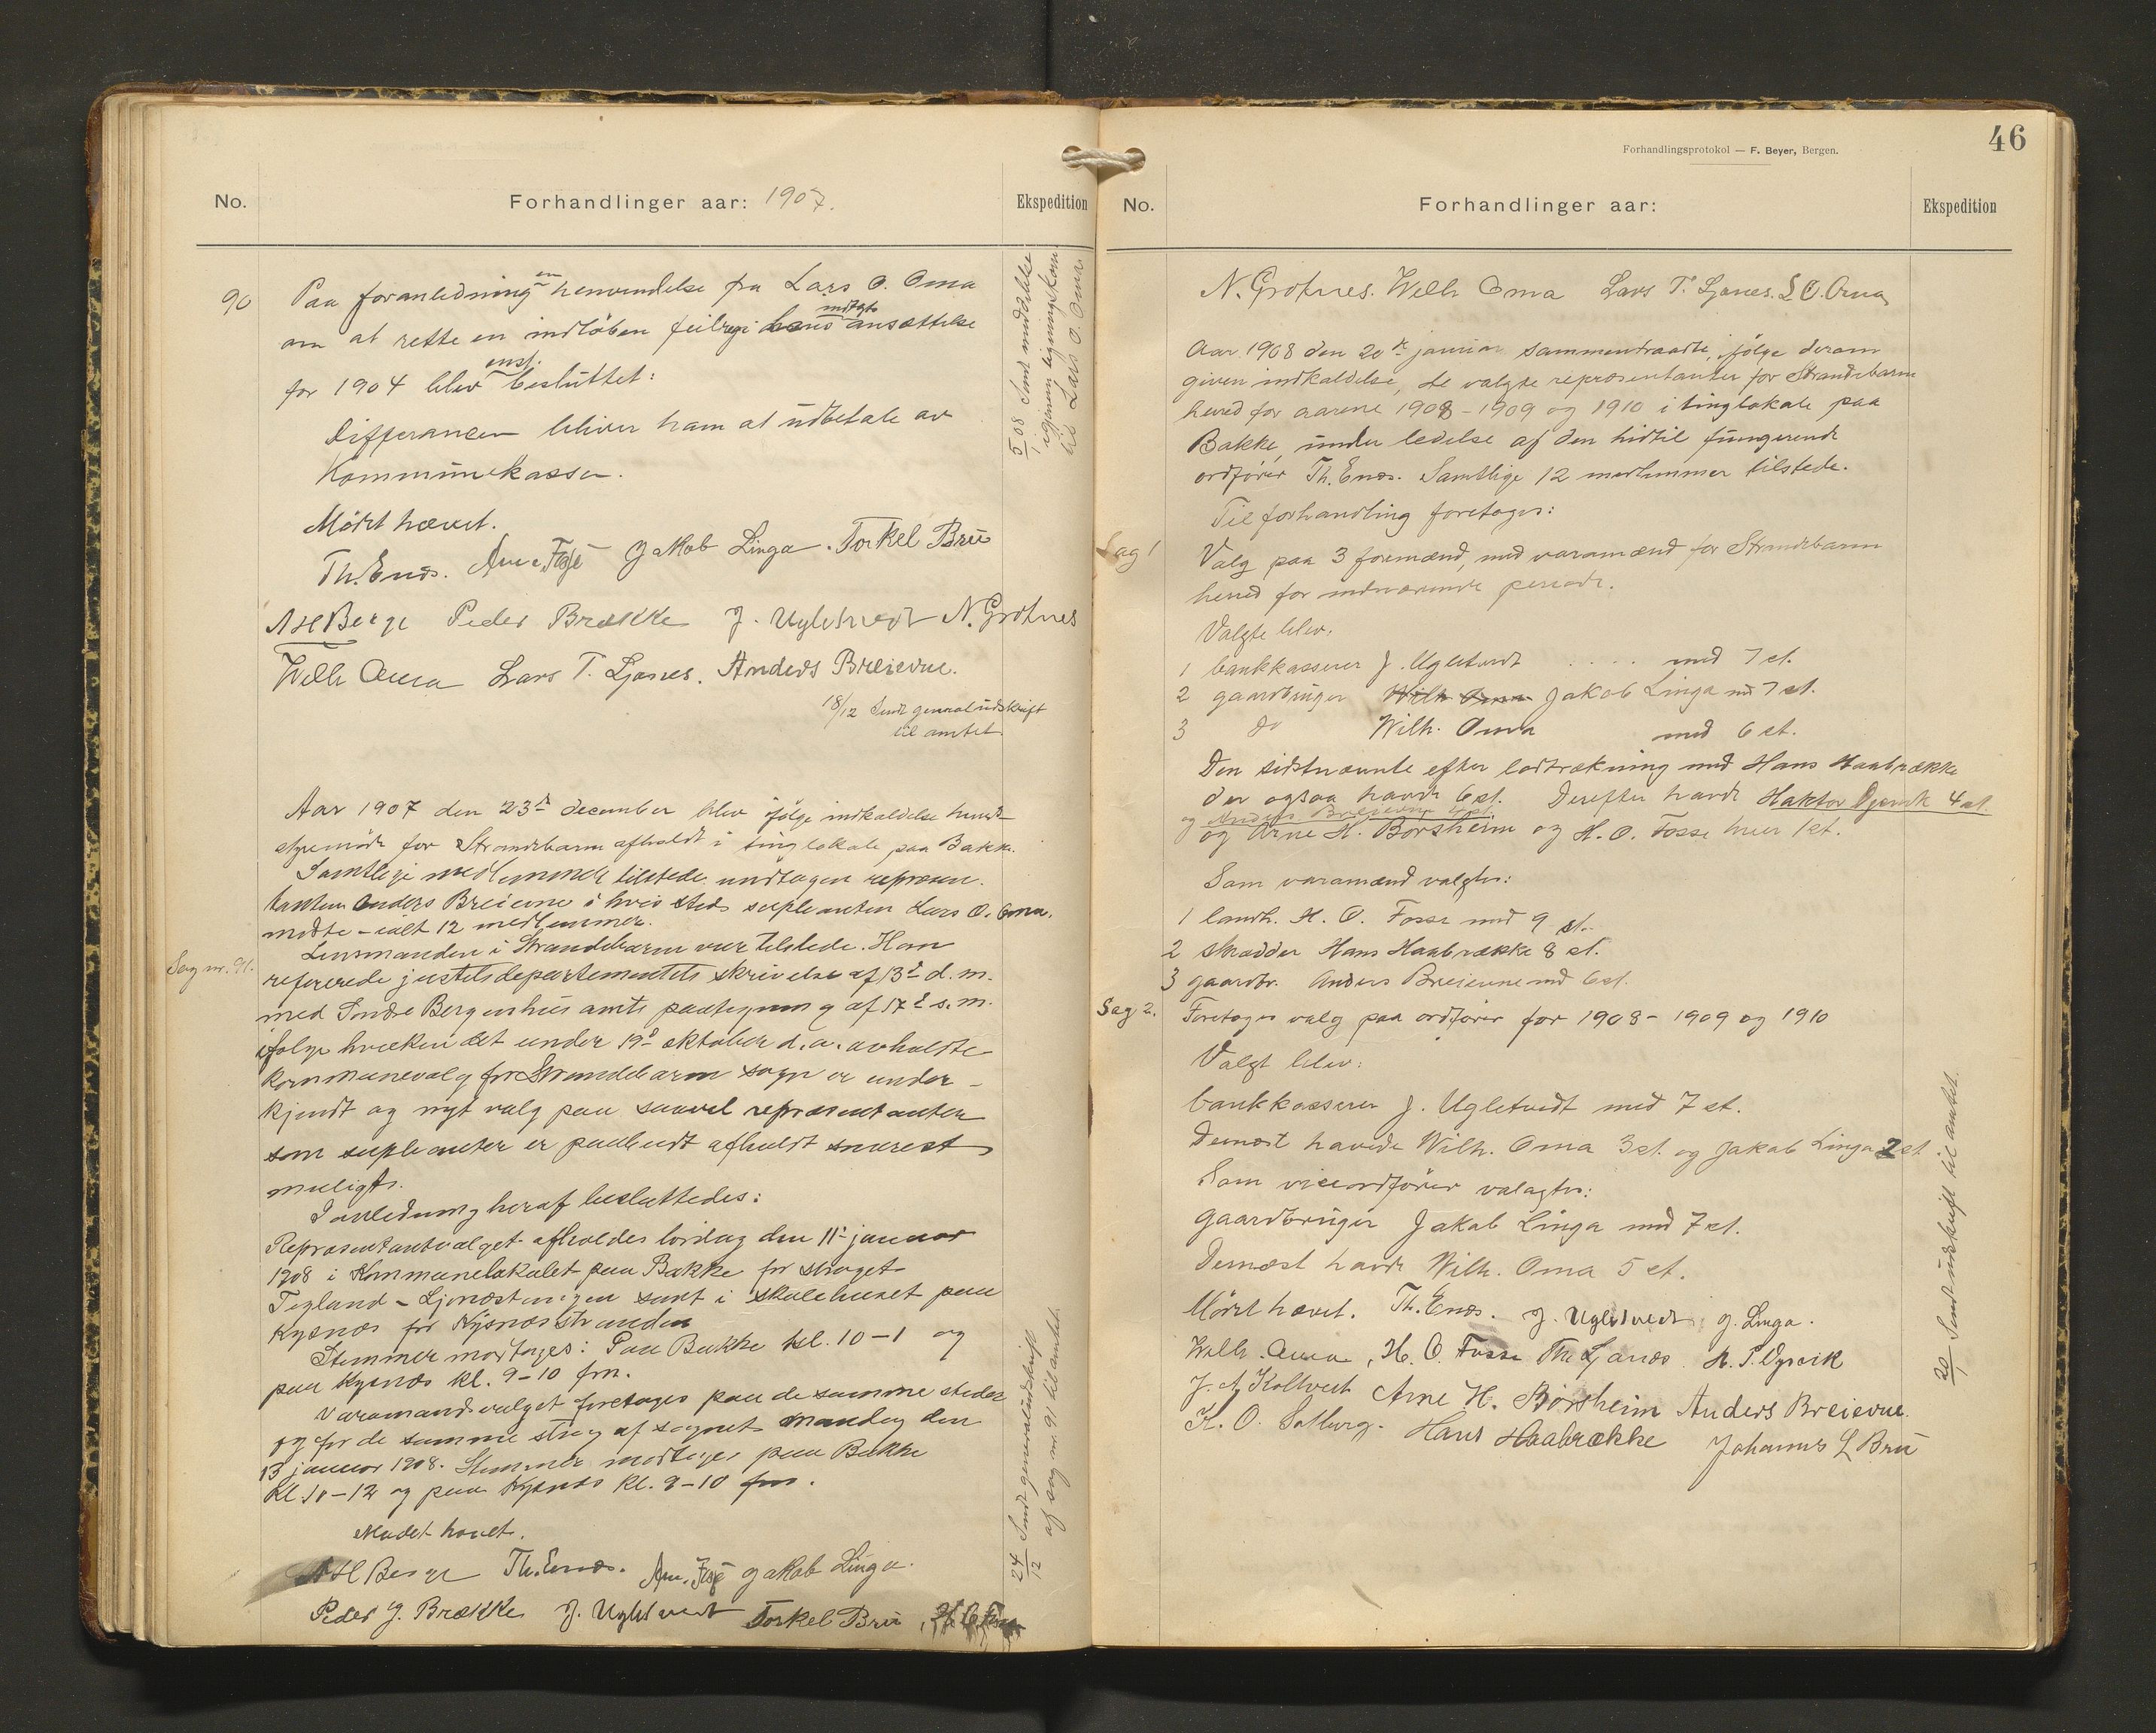 No. Forhandlinger aar: 1907. Ekspedition
90 Paa foranledning en henvendelse fra Lars O. Oma
om at rette en indløben feil i hans indtægts ansættelse
for 1904 blev enst. besluttet:
Differancen bliver ham at udbetale av
Kommunekassen.
Mødet hævet.
Th. Enæs. Jakob Linga. Torkel Bru
A H Berge Peder Brække J. Ugletvedt N. Grotnes
Wilh Oma Lars T. Ljones. Anders Breievne.
18/12 Sendt generaludskrift
til amtet
5/1 08 Sendt meddelelse
igjennem ligningskom
til Lars O. Oma
Aar 1907 den 23de december blev ifølge indkaldelse herreds-
styremøde for Strandebarm afholdt i tinglokale paa Bakke.
Samtlige medlemmer tilstede undtagen repræsen-
tanten Anders Breievne i hvis sted supleanten Lars O. Oma.
mødte - ialt 12 medlemmer.
Sag nr. 91. Lensmanden i Strandebarm var tilstede. Han
refererede justitsdepartementets skrivelse af 13de d. m.
med Søndre Bergenhus amts paategning af 17de s. m.
ifølge hvilken det under 19de oktober d. a. avholdte
kommunevalg for Strandebarm sogn er under-
kjendt og nyt valg paa saavel repræsentanter
som supleanter er paabudt afholdt snarest
muligt.
I anledning heraf besluttedes:
Repræsentantvalget afholdes lørdag den 11te januar
1908 i Kommunelokalet paa Bakke for strøget
Tegland - Ljonæstangen samt i skolehuset paa
Kysnæs for Kysnæsstranden
Stemmer modtages: Paa Bakke kl. 10-1 og
paa Kysnæs kl. 9-10 fm.
Varamandsvalget foretages paa de samme steder
og for de samme strøg af sognet mandag den
13 januar 1908. Stemmer modtages paa Bakke
kl. 10-12 og paa Kysnæs kl. 9-10 fm.
Mødet hævet.
A H Berge Th. Enæs. Jakob Linga.
Peder J. Brække J. Ugletvedt Torkel Bru, H. O. Fosse
24/12 Sendt generaludskrift
af sag nr. 91 til amtet.
Forhandlingsprotokol — F. Beyer, Bergen.
46
No. Forhandlinger aar: Ekspedition
N. Grotnes. Wilh Oma Lars T. Ljones. L O. Oma
Aar 1908 den 20de januar sammentraadte, ifølge derom
given indkaldelse, de valgte repræsentanter for Strandebarm
herred for aarene 1908-1909 og 1910 i tinglokale paa
Bakke, under ledelse af den hidtil fungerende
ordfører Th. Enæs. Samtlige 12 medlemmer tilstede.
Til forhandling foretoges:
Sag 1 Valg paa 3 formænd, med varamænd for Strandebarm
herred for indværende periode.
Valgte blev:
1 bankkasserer J. Ugletvedt .... med 7 st.
2 gaardbruger Wilh Oma Jakob Linga md 7 st.
3 do Wilh. Oma med 6 st.
Den sidstnævnte efter lodtrækning med Hans Haabrække
der ogsaa havde 6 st. Derefter havde Haktor Dysvik 4 st.
og Anders Breievne 4 st.
og Arne H. Børsheim og H. O. Fosse hver 1 st.
Som varamænd valgtes:
1 landh. H. O. Fosse med 9 st.
2 skrædder Hans Haabrække 8 st.
3 gaardbr. Anders Breievne md 6 st.
Sag 2. Foretoges valg paa ordfører for 1908-1909 og 1910
Valgt blev:
bankkasserer J. Ugletvedt med 7 st.
Dernæst havde Wilh. Oma 3 st. og Jakob Linga 2 st
Som viceordfører valgtes:
gaardbruger Jakob Linga med 7 st.
Dernæst havde Wilh. Oma 5 st.
Mødet hævet. Th. Enæs. J. Ugletvedt J. Linga.
Wilh. Oma, H. O. Fosse H. P. Dysvik
Arne H. Børsheim Anders Breievne.
Hans Haabrække Johannes L Bru
20/1 Sendt udskrift til amtet.